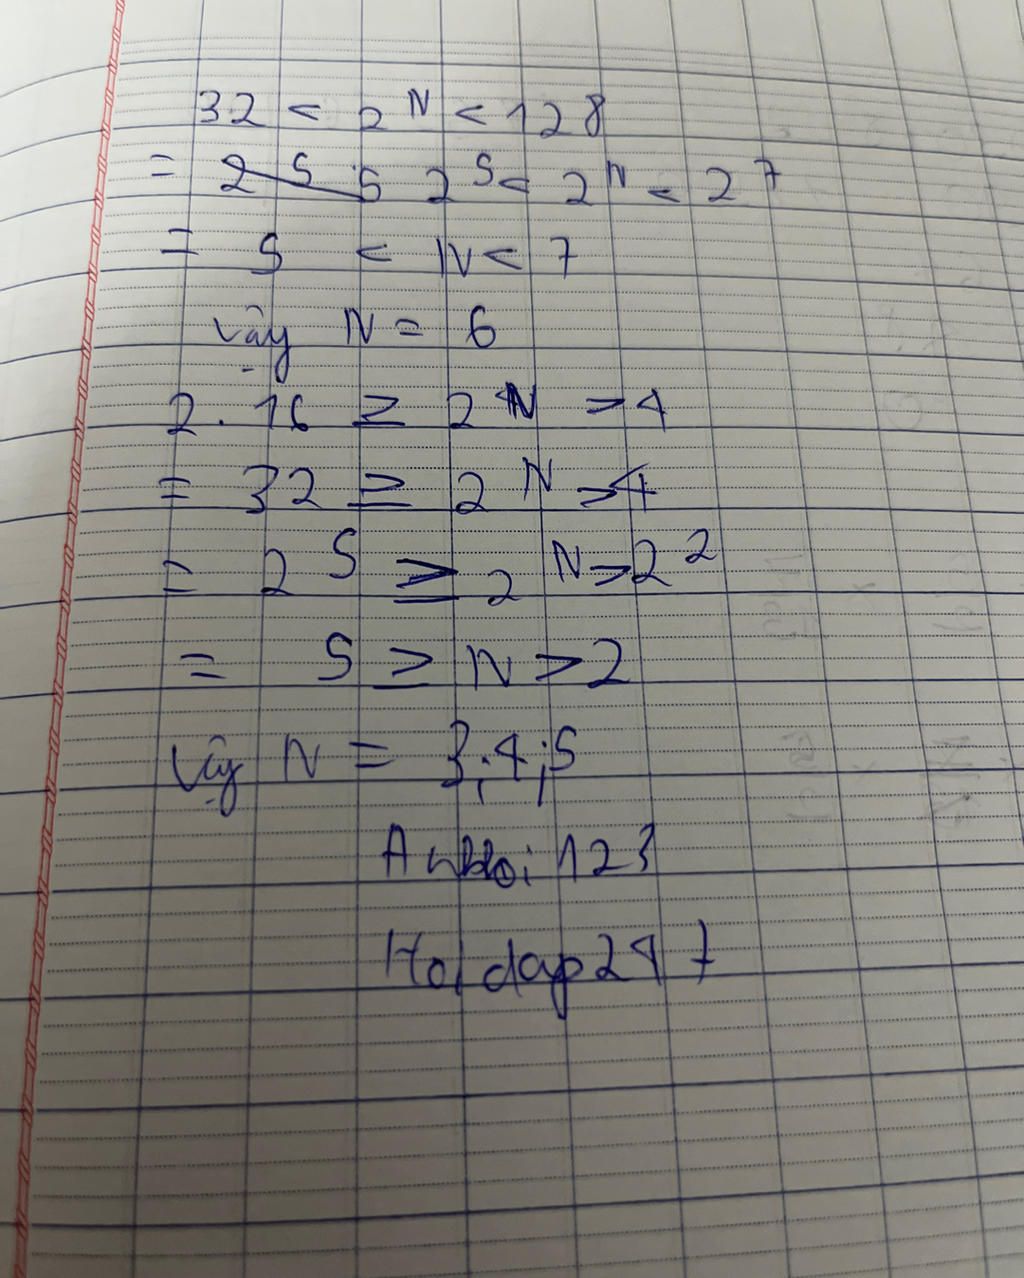 32 < 2^N < 128
= 2^5 < 2^N < 2^7
= 5 < N < 7
Vậy N = 6
2 . 16 ≥ 2^N > 4
= 32 ≥ 2^N > 4
= 2^5 ≥ 2^N > 2^2
= 5 ≥ N > 2
Vậy N = 3;4;5
123
Hoidap247